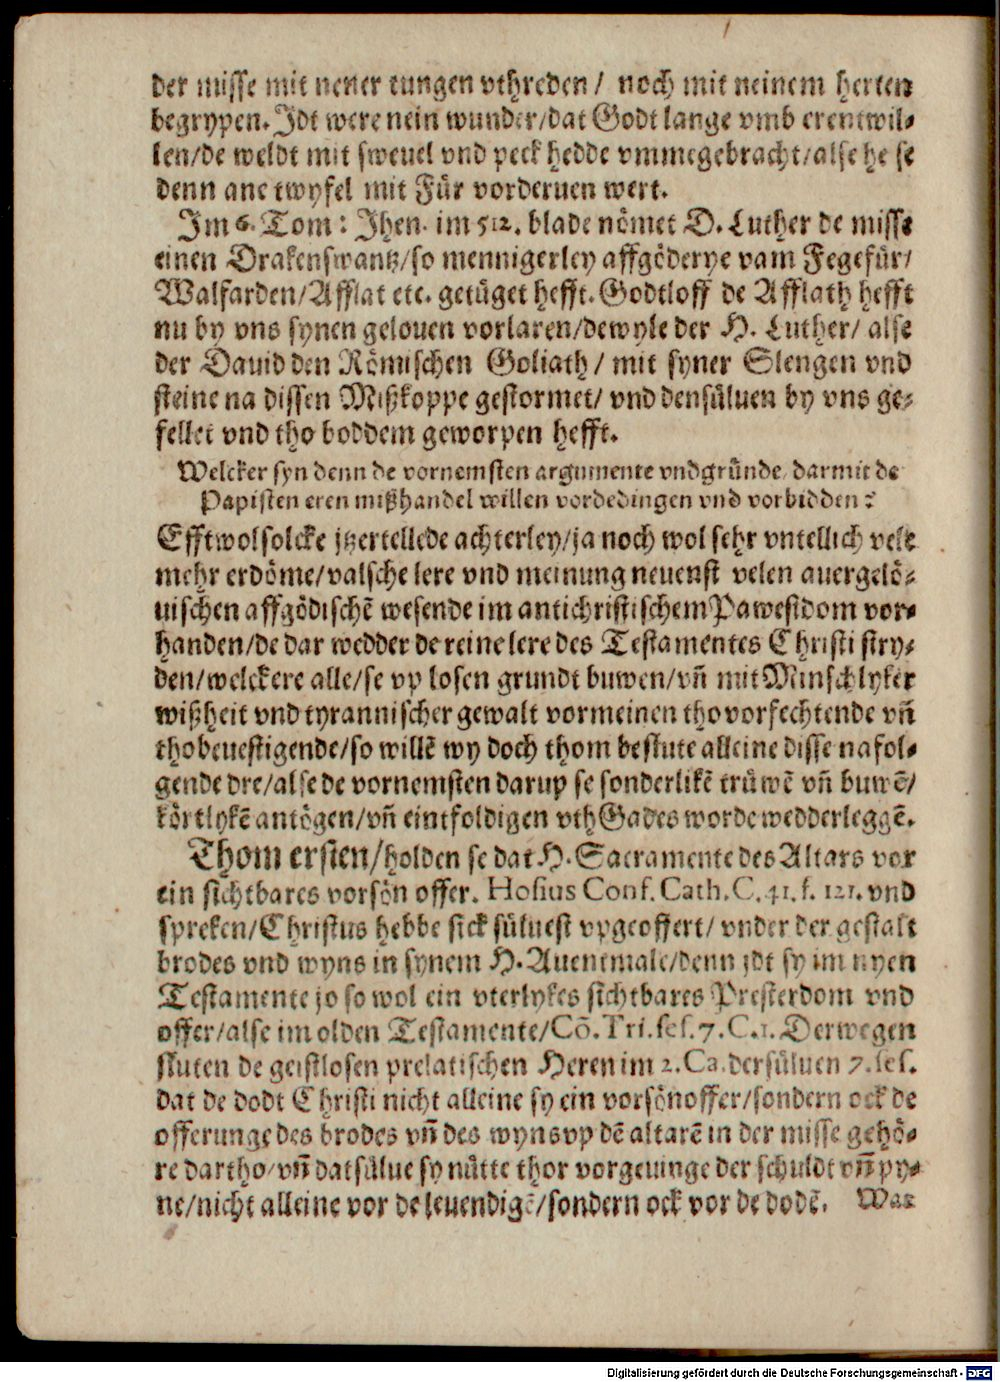 der misse mit nener tungen vthreden / noch mit neinem herten
begrypen. Jdt were nein wunder/dat Godt lange vmb erentwil-
len/de weldt mit sweuel vnd peck hedde vmmegebracht/alse he se
denn ane twyfel mit Für vorderuen wert.
Jm 6. Tom: Jhen. im 512. blade nömet D. Luther de misse
einen Drakenswantz/so mennigerley affgöderye vam Fegefür/
Walfarden/Afflat etc. getüget hefft. Godtloff de Afflath hefft
nu by vns synen gelouen vorlaren/dewyle der H. Luther/ alse
der Dauid den Römischen Goliath/ mit syner Slengen vnd
steine na dissen Mißkoppe gestormet/ vnd densüluen by vns ge-
fellet vnd tho boddem geworpen hefft.
Welcker syn denn de vornemsten argumente vndgründe/ darmit de
Papisten eren mißhandel willen vordedingen vnd vorbidden?
Efftwol solcke jtzertellede achterley/ja noch wol sehr vntellich vele
mehr erdöme/valsche lere vnd meinung neuenst velen auergelö-
uischen affgödischē wesende im antichristischem Pawestdom vor-
handen/de dar wedder de reine lere des Testamentes Christi stry-
den/welckere alle/se vp losen grundt buwen/vñ mit Minschlyker
wißheit vnd tyrannischer gewalt vormeinen tho vorfechtende vñ
thobeuestigende/so willē wy doch thom beslute alleine disse nafol-
gende dre/alse de vornemsten darup se sonderlikē trüwē vñ buwē/
körtlykē antögen/vñ eintfoldigen vth Gades worde wedderleggē.
Thom ersten/holden se dat H. Sacramente des Altars vor
ein sichtbares vorsön offer. Hosius Conf. Cath. C. 41. f. 121. vnd
spreken/Christus hebbe sick süluest vpgeoffert/ vnder der gestalt
brodes vnd wyns in synem H. Auentmale/denn jdt sy im nyen
Testamente jo so wol ein vterlykes sichtbares Presterdom vnd
offer/alse im olden Testamente/Cō. Tri. ses. 7. C. 1. Derwegen
sluten de geistlosen prelatischen Heren im 2. Ca. dersüluen 7. ses.
dat de dodt Christi nicht alleine sy ein vorsönoffer/sondern ock de
offerunge des brodes vñ des wyns vp dē altarē in der misse gehö-
re dartho/vñ datsülue sy nütte thor vorgeuinge der schuldt vñ py-
ne/nicht alleine vor de leuendigē/sondern ock vor de dodē. Wat
Digitalisierung gefördert durch die Deutsche Forschungsgemeinschaft - DFG